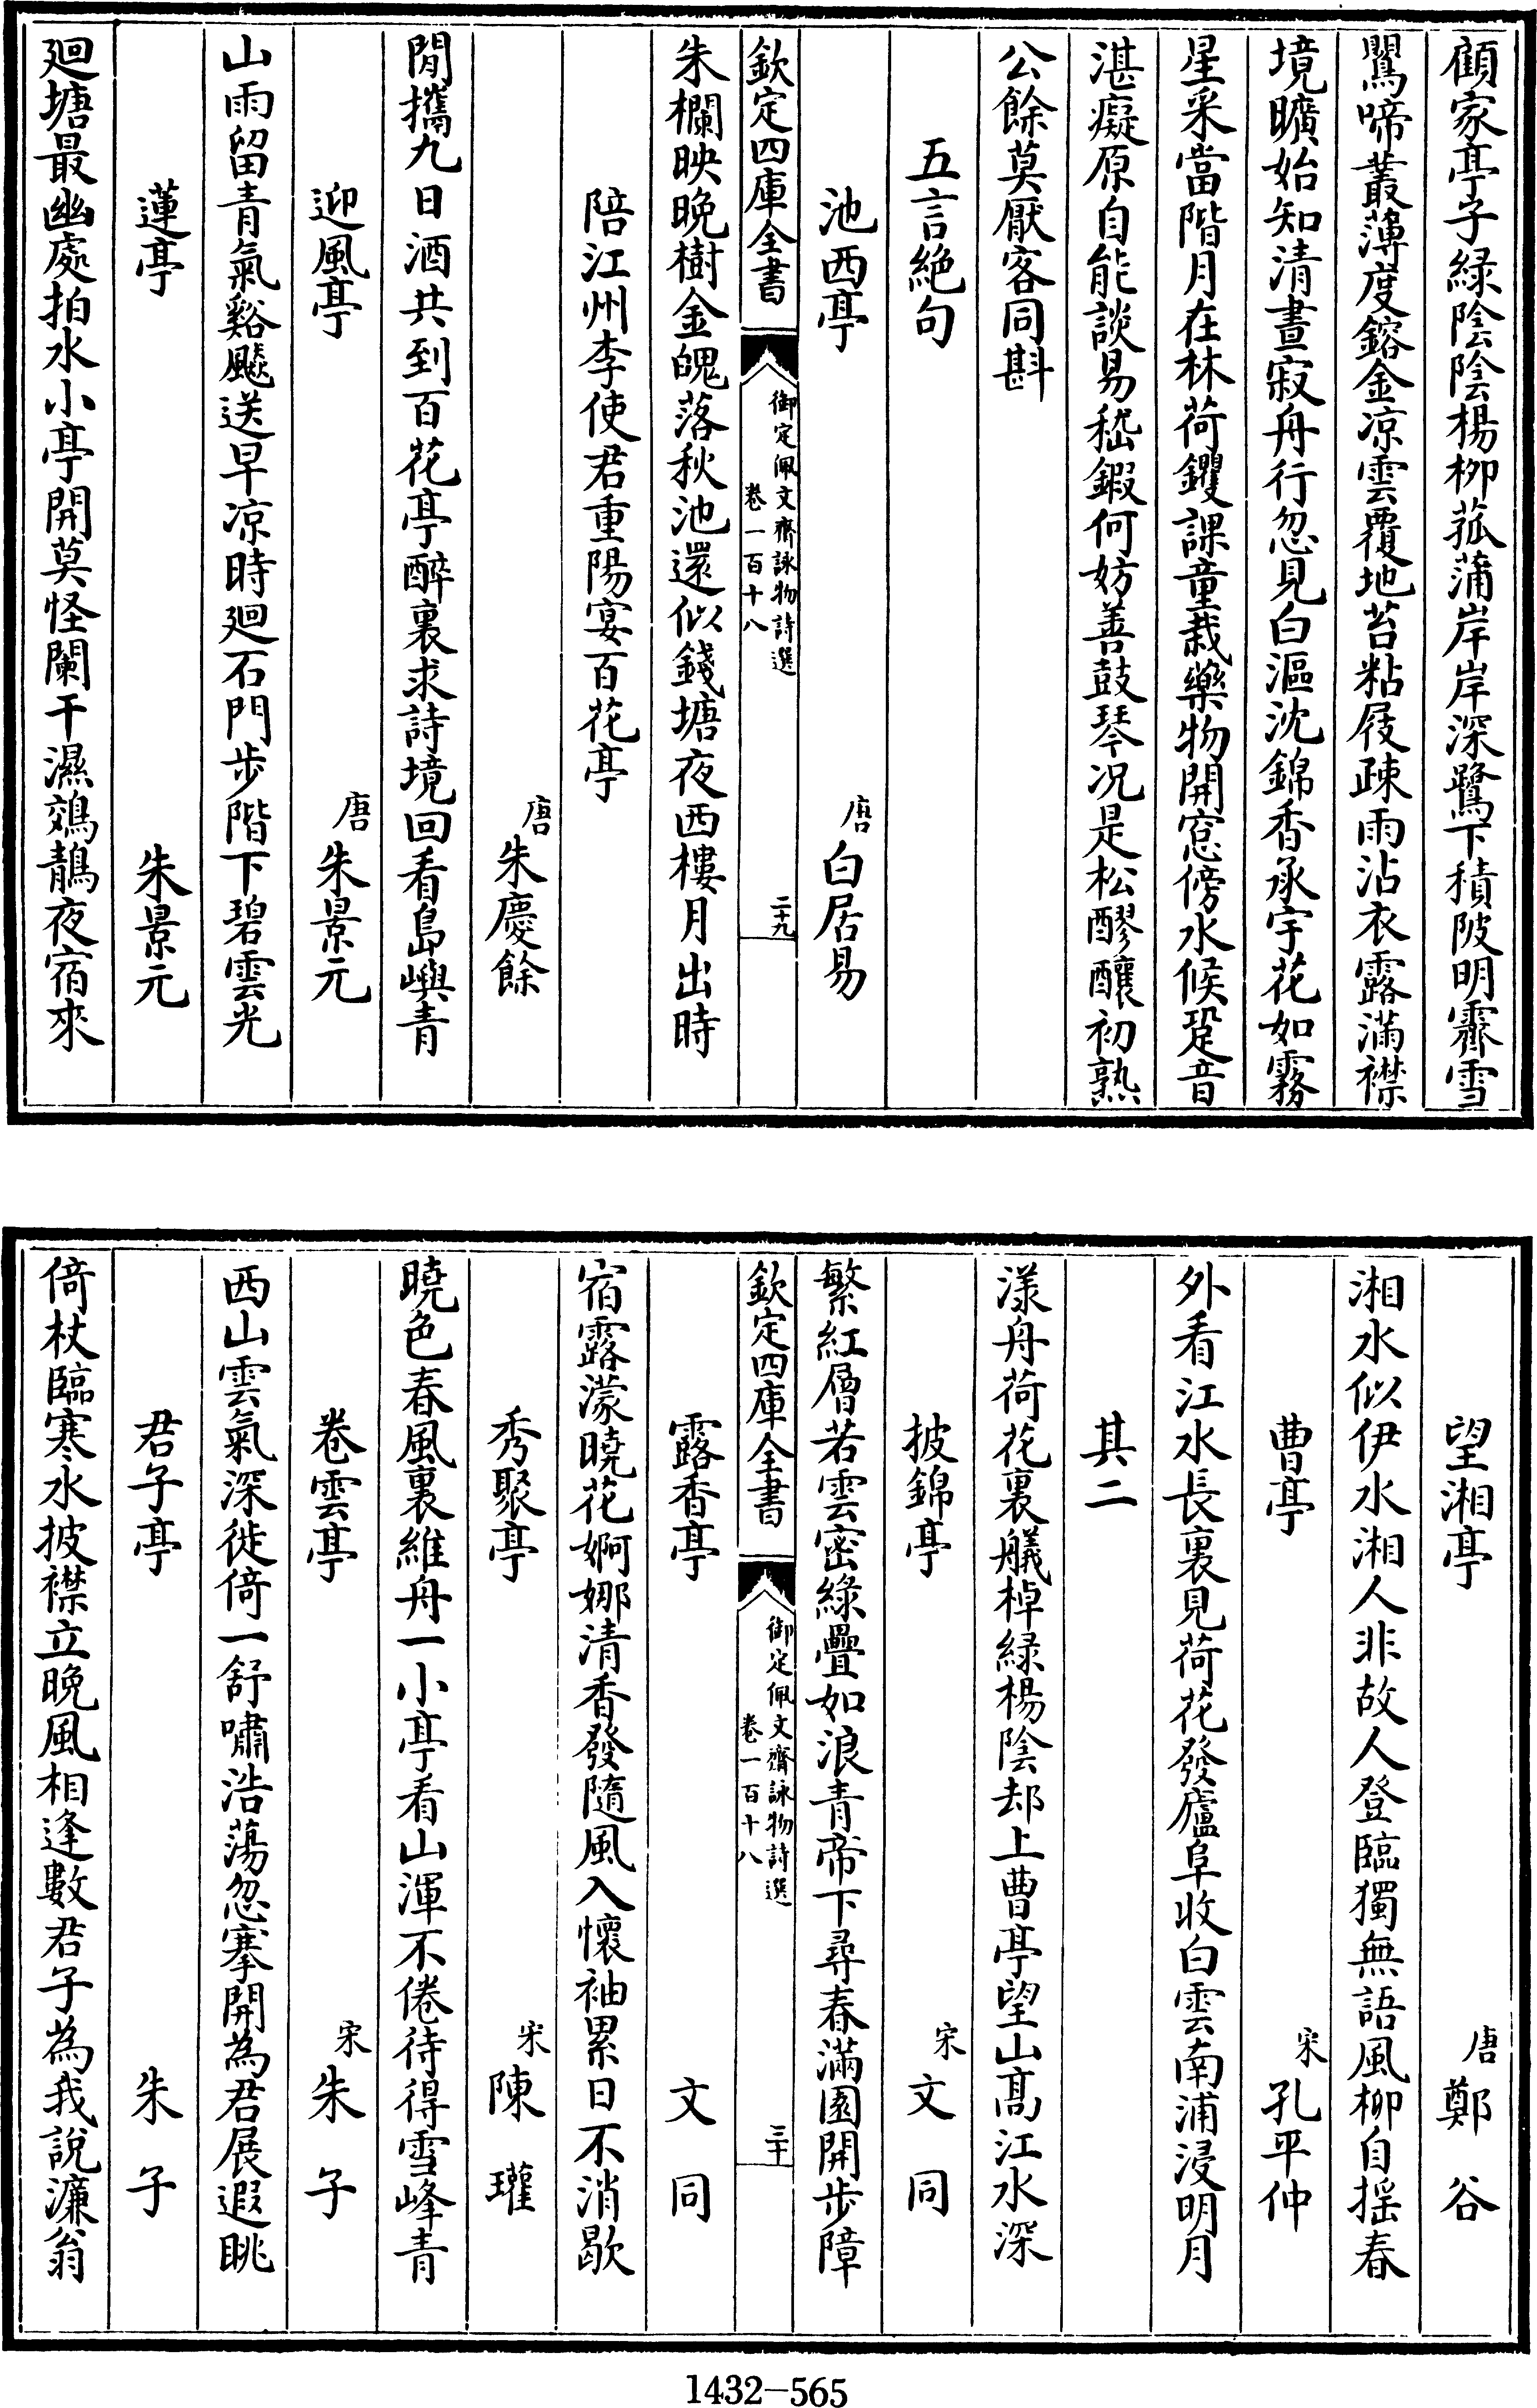 顧家亭子緑陰陰楊柳菰蒲岸岸深鷺下積陂明霽雪
鸎啼叢薄度鎔金凉雲覆地苔粘屐疎雨沾衣露滿襟
境曠始知清晝寂舟行忽見白漚沈錦香承宇花如霧
星采當階月在林荷鑺課童栽藥物開窓傍水候跫音
湛癡原自能談易嵇鍜何妨善鼓琴况是松醪釀初熟
公餘莫厭客同斟
五言絶句
池西亭 唐 白居易
欽定四庫全書 御定佩文齋詠物詩選 卷一百十八 二十九
朱欄映晚樹金魄落秋池還似錢塘夜西樓月出時
陪江州李使君重陽宴百花亭
唐 朱慶餘
閒攜九日酒共到百花亭醉裏求詩境回看島嶼青
迎風亭 唐 朱景元
山雨留青氣谿飈送早凉時廻石門步階下碧雲光
蓮亭 朱景元
廻塘最幽處拍水小亭開莫怪闌干濕鵁鶄夜宿來
望湘亭 唐 鄭谷
湘水似伊水湘人非故人登臨獨無語風柳自揺春
曹亭 宋 孔平仲
外看江水長裏見荷花發廬阜收白雲南浦浸明月
其二
漾舟荷花裏艤棹緑楊陰却上曹亭望山髙江水深
披錦亭 宋 文同
繁紅層若雲密緑疊如浪青帝下尋春滿園開步障
欽定四庫全書 御定佩文齋詠物詩選 卷一百十八 三十
露香亭 文同
宿露濛曉花婀娜清香發隨風入懷袖累日不消歇
秀聚亭 宋 陳瓘
曉色春風裏維舟一小亭看山渾不倦待得雪峰青
卷雲亭 宋 朱子
西山雲氣深徙倚一舒嘯浩蕩忽搴開為君展遐眺
君子亭 朱子
倚杖臨寒水披襟立晚風相逢數君子為我說濂翁
1432-565